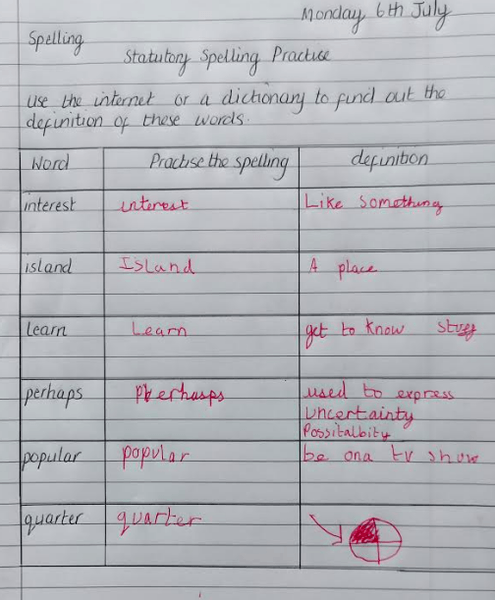 Monday 6th July
Spelling
Statutory Spelling Practise
Use the internet or a dictionary to find out the
definition of these words.
Word Practise the spelling definition
interest interest Like something
island Island A place
learn Learn get to know stuff
perhaps perhasps used to express
Uncertainty
Possitalbity
popular popular be ona tv show
quarter quarter